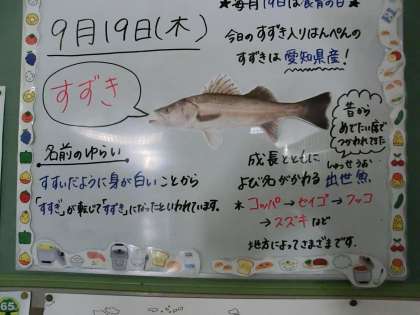 ★毎月19日は食育の日★
9月19日(木)
今日のすずき入りはんぺんの
すずきは愛知県産!
すずき
昔から
めでたい席で
つかわれてきた
名前のゆらい
すすいだように身が白いことから
「すすぎ」が転じて「すずき」になったといわれています。
成長とともに しゅっせうお
よび名がかわる出世魚
* コッパ→セイゴ→フッコ
→スズキなど
地方によってさまざまです。
65